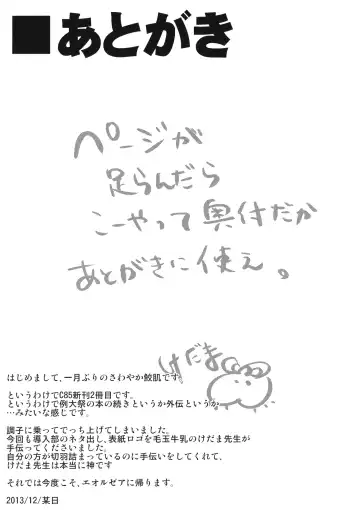 ■あとがき
ページが
足らんだら
こーやって奥付だか
あとがきに使え。
けだま
はじめまして、一月ぶりのさわやか鮫肌です。
というわけでC85新刊2冊目です。
というわけで例大祭の本の続きというか外伝というか
…みたいな感じです。
調子に乗ってでっち上げてしまいました。
今回も導入部のネタ出し、表紙ロゴを毛玉牛乳のけだま先生が
手伝ってくださいました。
自分の方が切羽詰まっているのに手伝いをしてくれて、
けだま先生は本当に神です
それでは今度こそ、エオルゼアに帰ります。
2013/12/某日